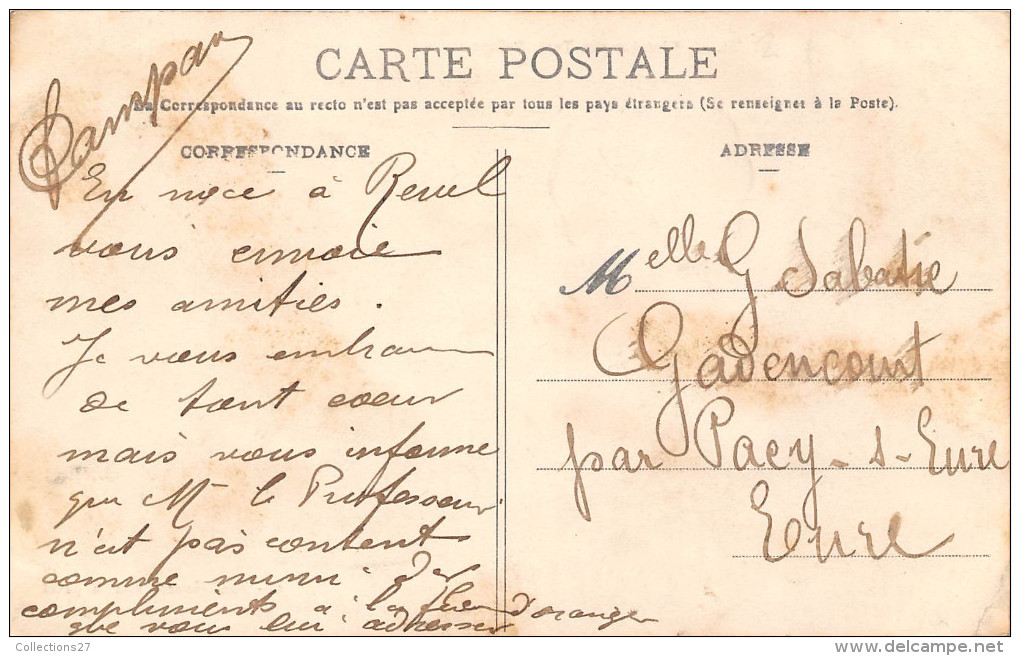 CARTE POSTALE
La Correspondance au recto n'est pas acceptée par tous les pays étrangers (Se renseigner à la Poste).
CORRESPONDANCE
ADRESSE
En noce à Revel
vous envoie
mes amitiés.
Je vous
de tout coeur
mais vous informe
que Mr le Professeur
n'est pas content
comme
compliments à la fleur d'oranger
que vous lui adressez
Melle G Sabatié
Gadencourt
par Pacy-s-Eure
Eure
Collections27
© delcampe.net